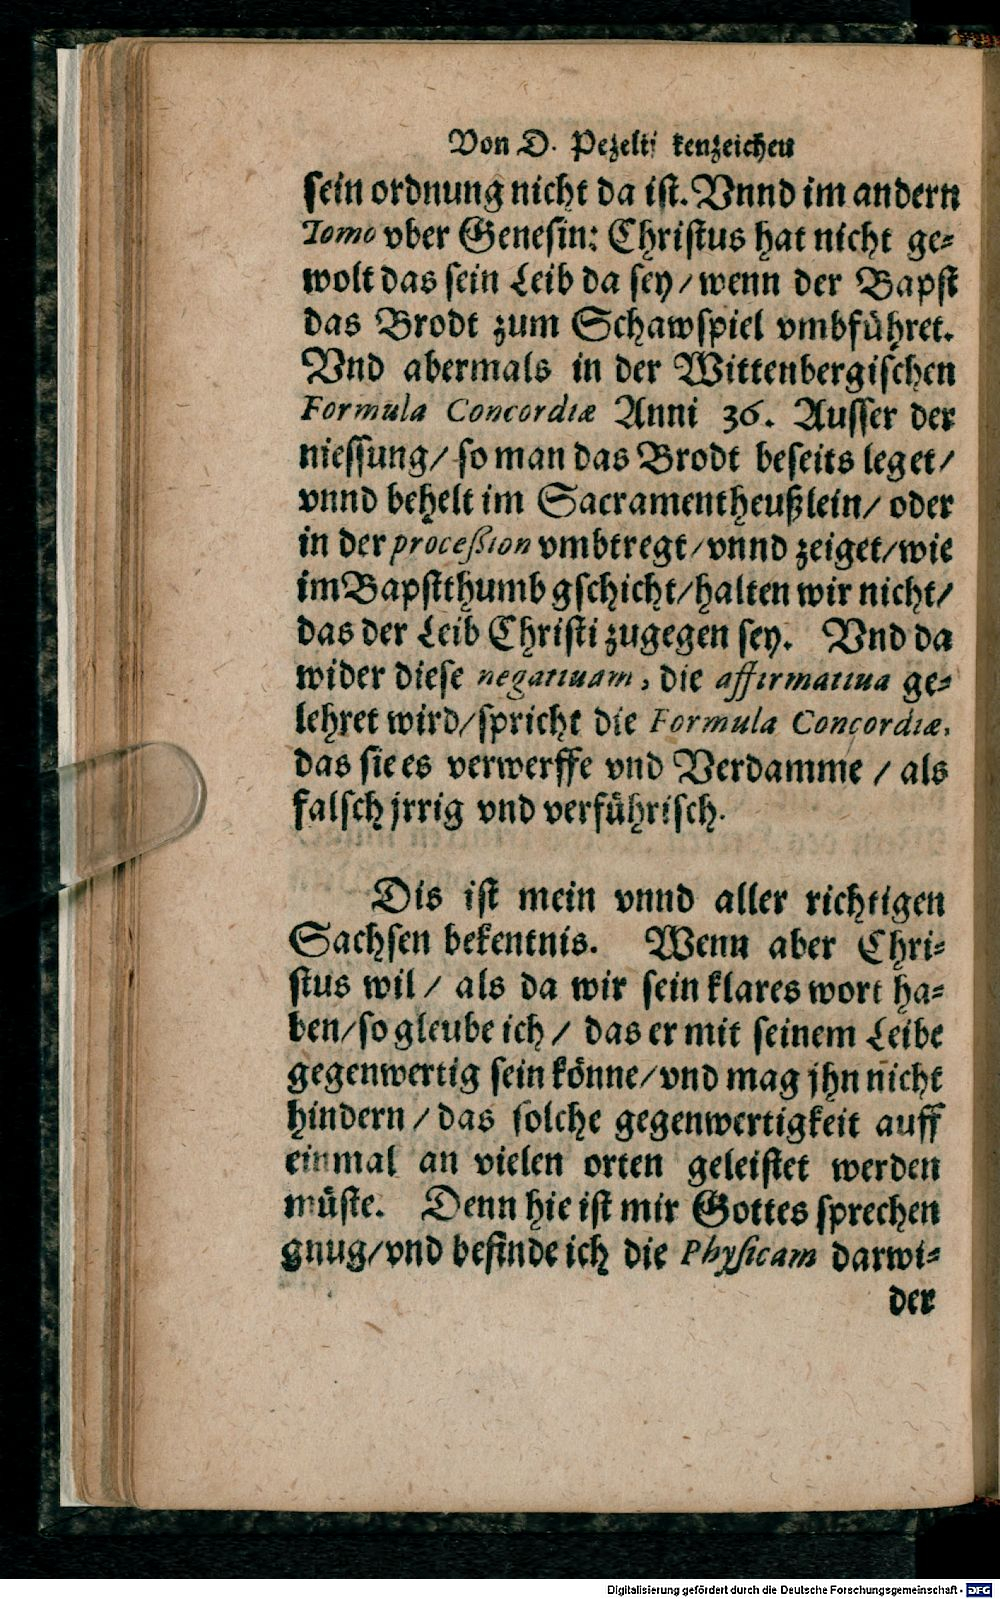 Von D. Pezelij kenzeichen
sein ordnung nicht da ist. Vnnd im andern
Tomo vber Genesin: Christus hat nicht ge-
wolt das sein Leib da sey / wenn der Bapst
das Brodt zum Schawspiel vmbführet.
Vnd abermals in der Wittenbergischen
Formula Concordiæ Anni 36. Ausser der
niessung / so man das Brodt beseits leget /
vnnd behelt im Sacramentheußlein / oder
in der proceßion vmbtregt / vnnd zeiget / wie
im Bapstthumb gschicht / halten wir nicht /
das der Leib Christi zugegen sey. Vnd da
wider diese negatiuam, die affirmatiua ge-
lehret wird / spricht die Formula Concordiæ,
das sie es verwerffe vnd Verdamme / als
falsch jrrig vnd verführisch.
Dis ist mein vnnd aller richtigen
Sachsen bekentnis. Wenn aber Chri-
stus wil / als da wir sein klares wort ha-
ben / so gleube ich / das er mit seinem Leibe
gegenwertig sein könne / vnd mag jhn nicht
hindern / das solche gegenwertigkeit auff
einmal an vielen orten geleistet werden
müste. Denn hie ist mir Gottes sprechen
gnug / vnd befinde ich die Physicam darwi-
der
Digitalisierung gefördert durch die Deutsche Forschungsgemeinschaft - DFG